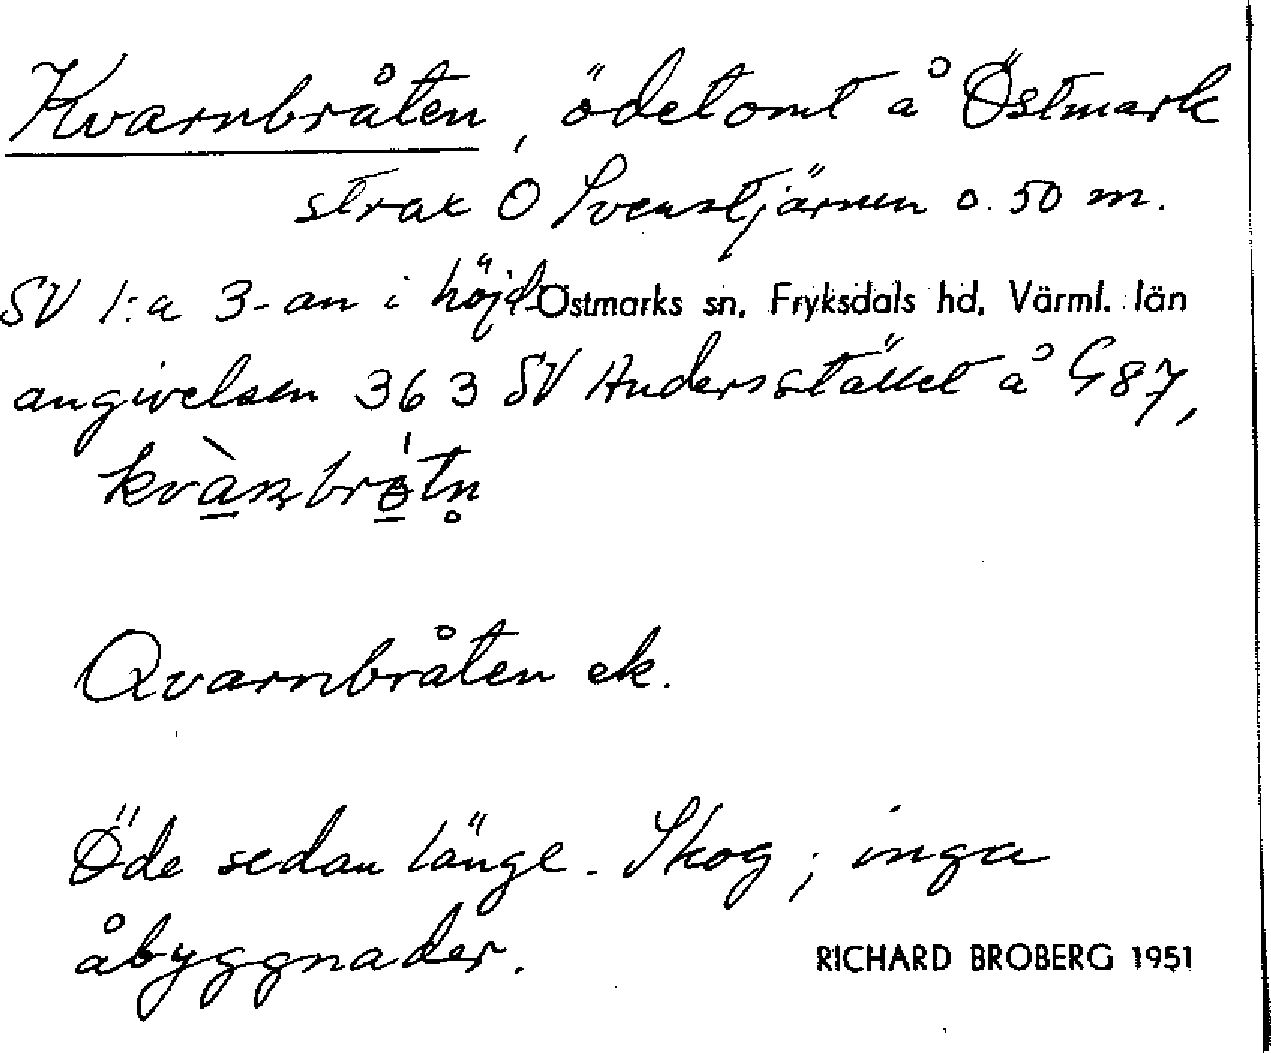 Kvarnbråten, ödetomt å Östmark
strax O Svenstjärnen o. 50 m.
SV 1:a 3-an i höjd-
Östmarks sn, Fryksdals hd, Värml. län
angivelsen 363 SV Andersstället å G 87,
Qvarnbråten ek.
Öde sedan länge. Skog; inga
åbyggnader.
RICHARD BROBERG 1951